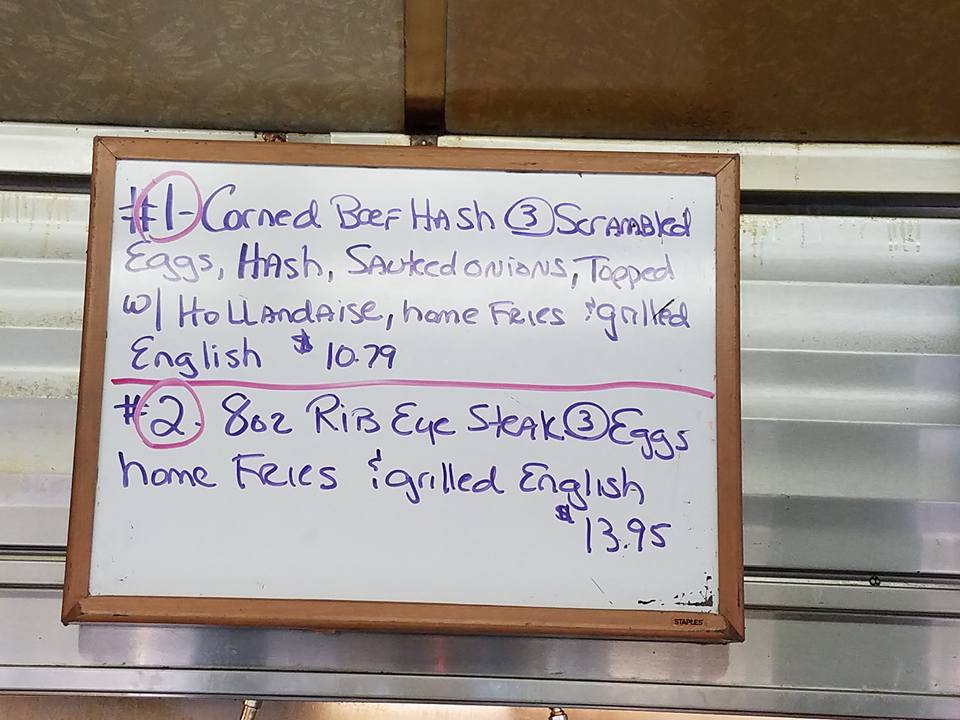 #1- Corned Beef Hash ③ Scrambled
Eggs, Hash, Sauteed onions, Topped
w/ Hollandaise, home Fries & grilled
English $10.79
#2. 8oz Rib Eye Steak ③ Eggs
home Fries & grilled English
$13.95
STAPLES